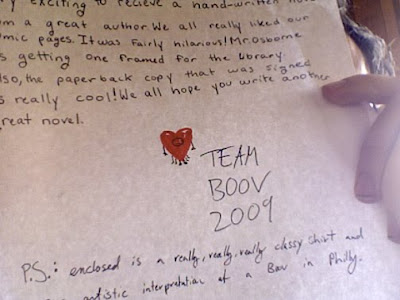 exciting to recieve a hand-written
a great author. We all really liked our
pages. It was Fairly hilarious! Mr. Osborne
getting one framed for the library.
the paperback copy that was signed
really cool! We all hope you write another
great novel.
TEAM
BOOV
2009
P.S.: enclosed is a really, really, really classy shirt and
artistic interpretation of a Boov in Philly.